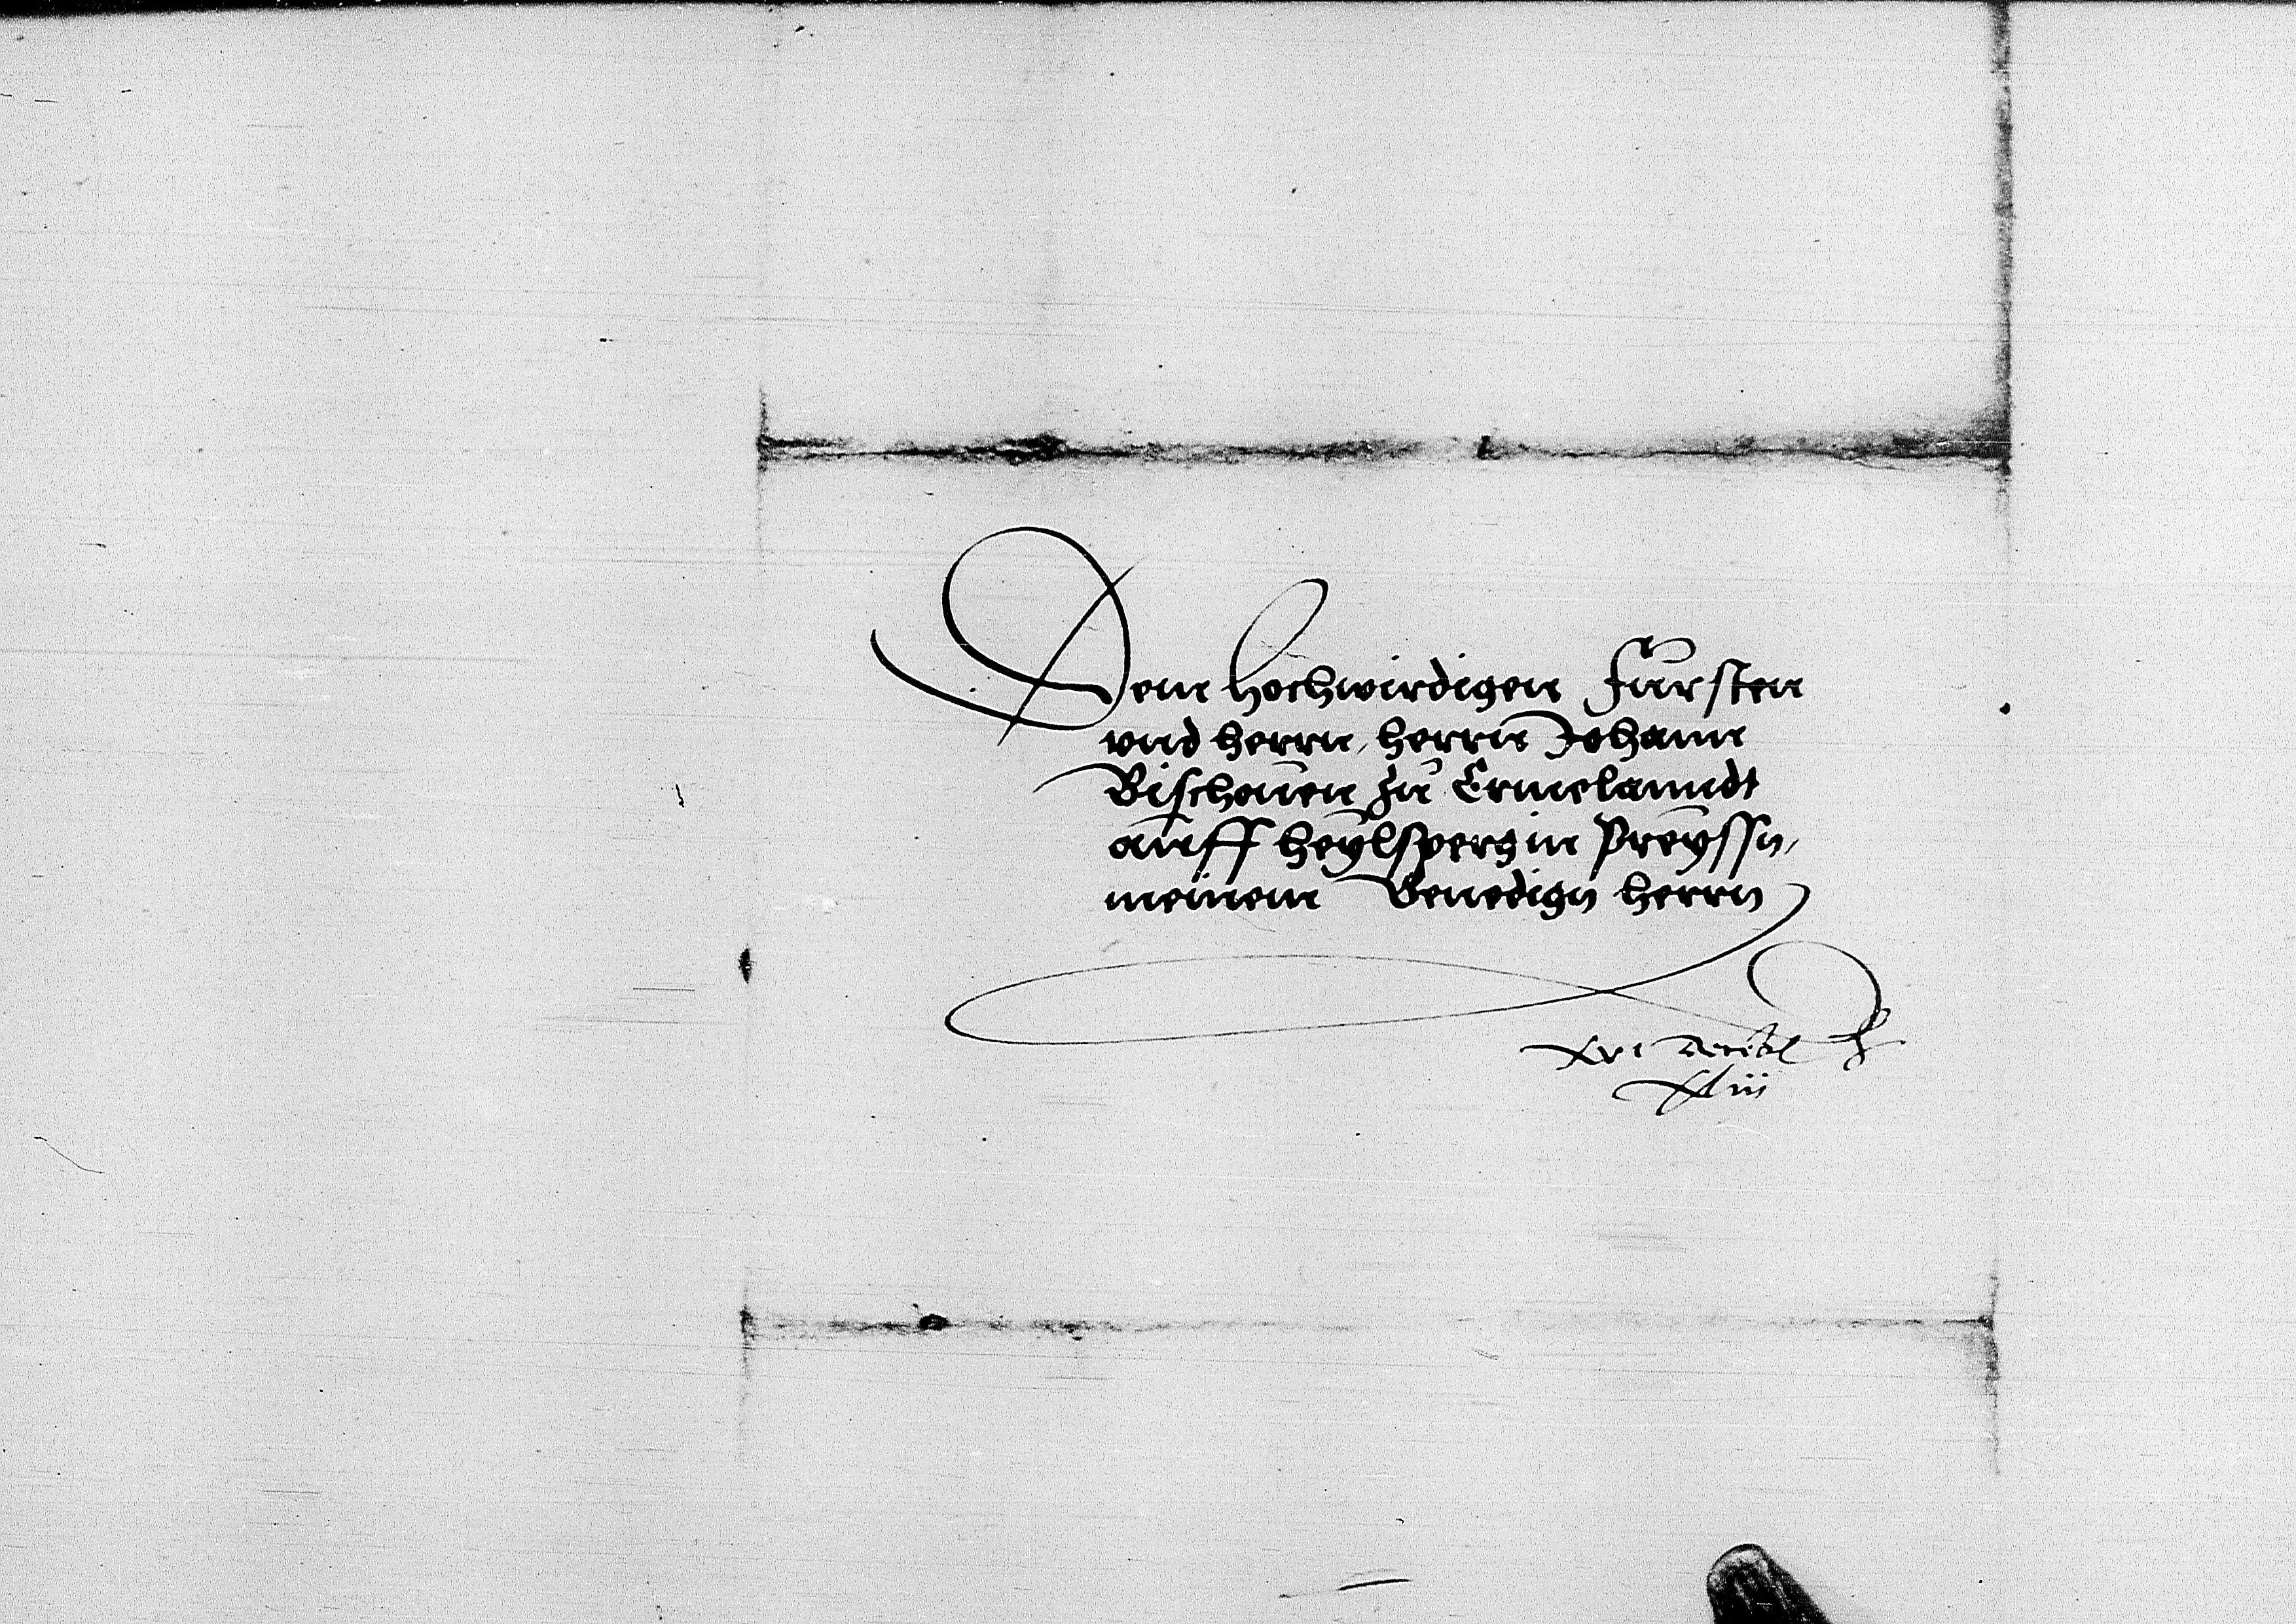 Dem hochwirdigen Fürsten
vnd herrn, herrn Johann
Bischouen zu Ermelanndt
auff heylsperg in Preyssn,
meinem Genedign herrn
xvi
xliii